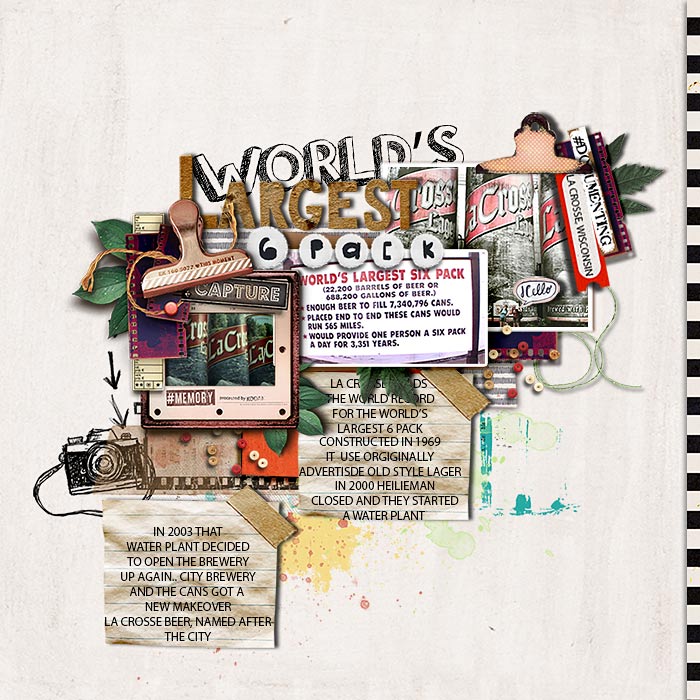 WORLD'S
LARGEST
6 PACK
#DOCUMENTING
LA CROSSE, WISCONSIN
Hello
LaCrosse
Lage
CAPTURE
#MEMORY
WORLD'S LARGEST SIX PACK
(22,200 BARRELS OF BEER OR
688,200 GALLONS OF BEER.)
ENOUGH BEER TO FILL 7,340,796 CANS.
* PLACED END TO END THESE CANS WOULD
RUN 565 MILES.
* WOULD PROVIDE ONE PERSON A SIX PACK
A DAY FOR 3,351 YEARS.
LA CROSSE HOLDS
THE WORLD RECORD
FOR THE WORLD'S
LARGEST 6 PACK
CONSTRUCTED IN 1969
IT USE ORGIGINALLY
ADVERTISDE OLD STYLE LAGER
IN 2000 HEILIEMAN
CLOSED AND THEY STARTED
A WATER PLANT
IN 2003 THAT
WATER PLANT DECIDED
TO OPEN THE BREWERY
UP AGAIN.. CITY BREWERY
AND THE CANS GOT A
NEW MAKEOVER
LA CROSSE BEER, NAMED AFTER
THE CITY